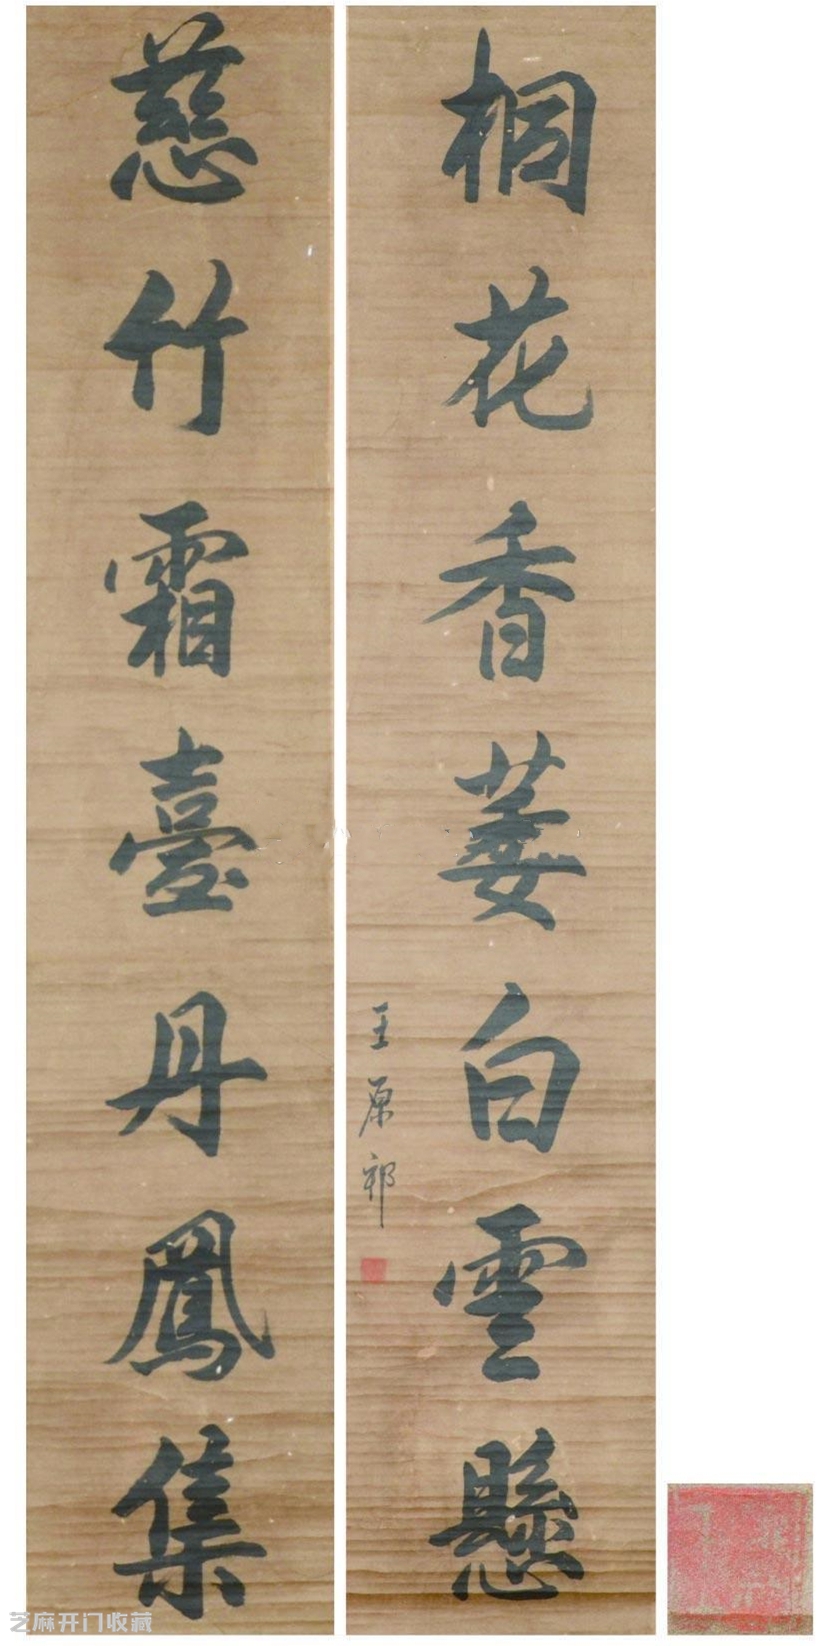 慈竹霜臺丹鳳集
桐花香萎白雲懸
王原祁
芝麻开门收藏